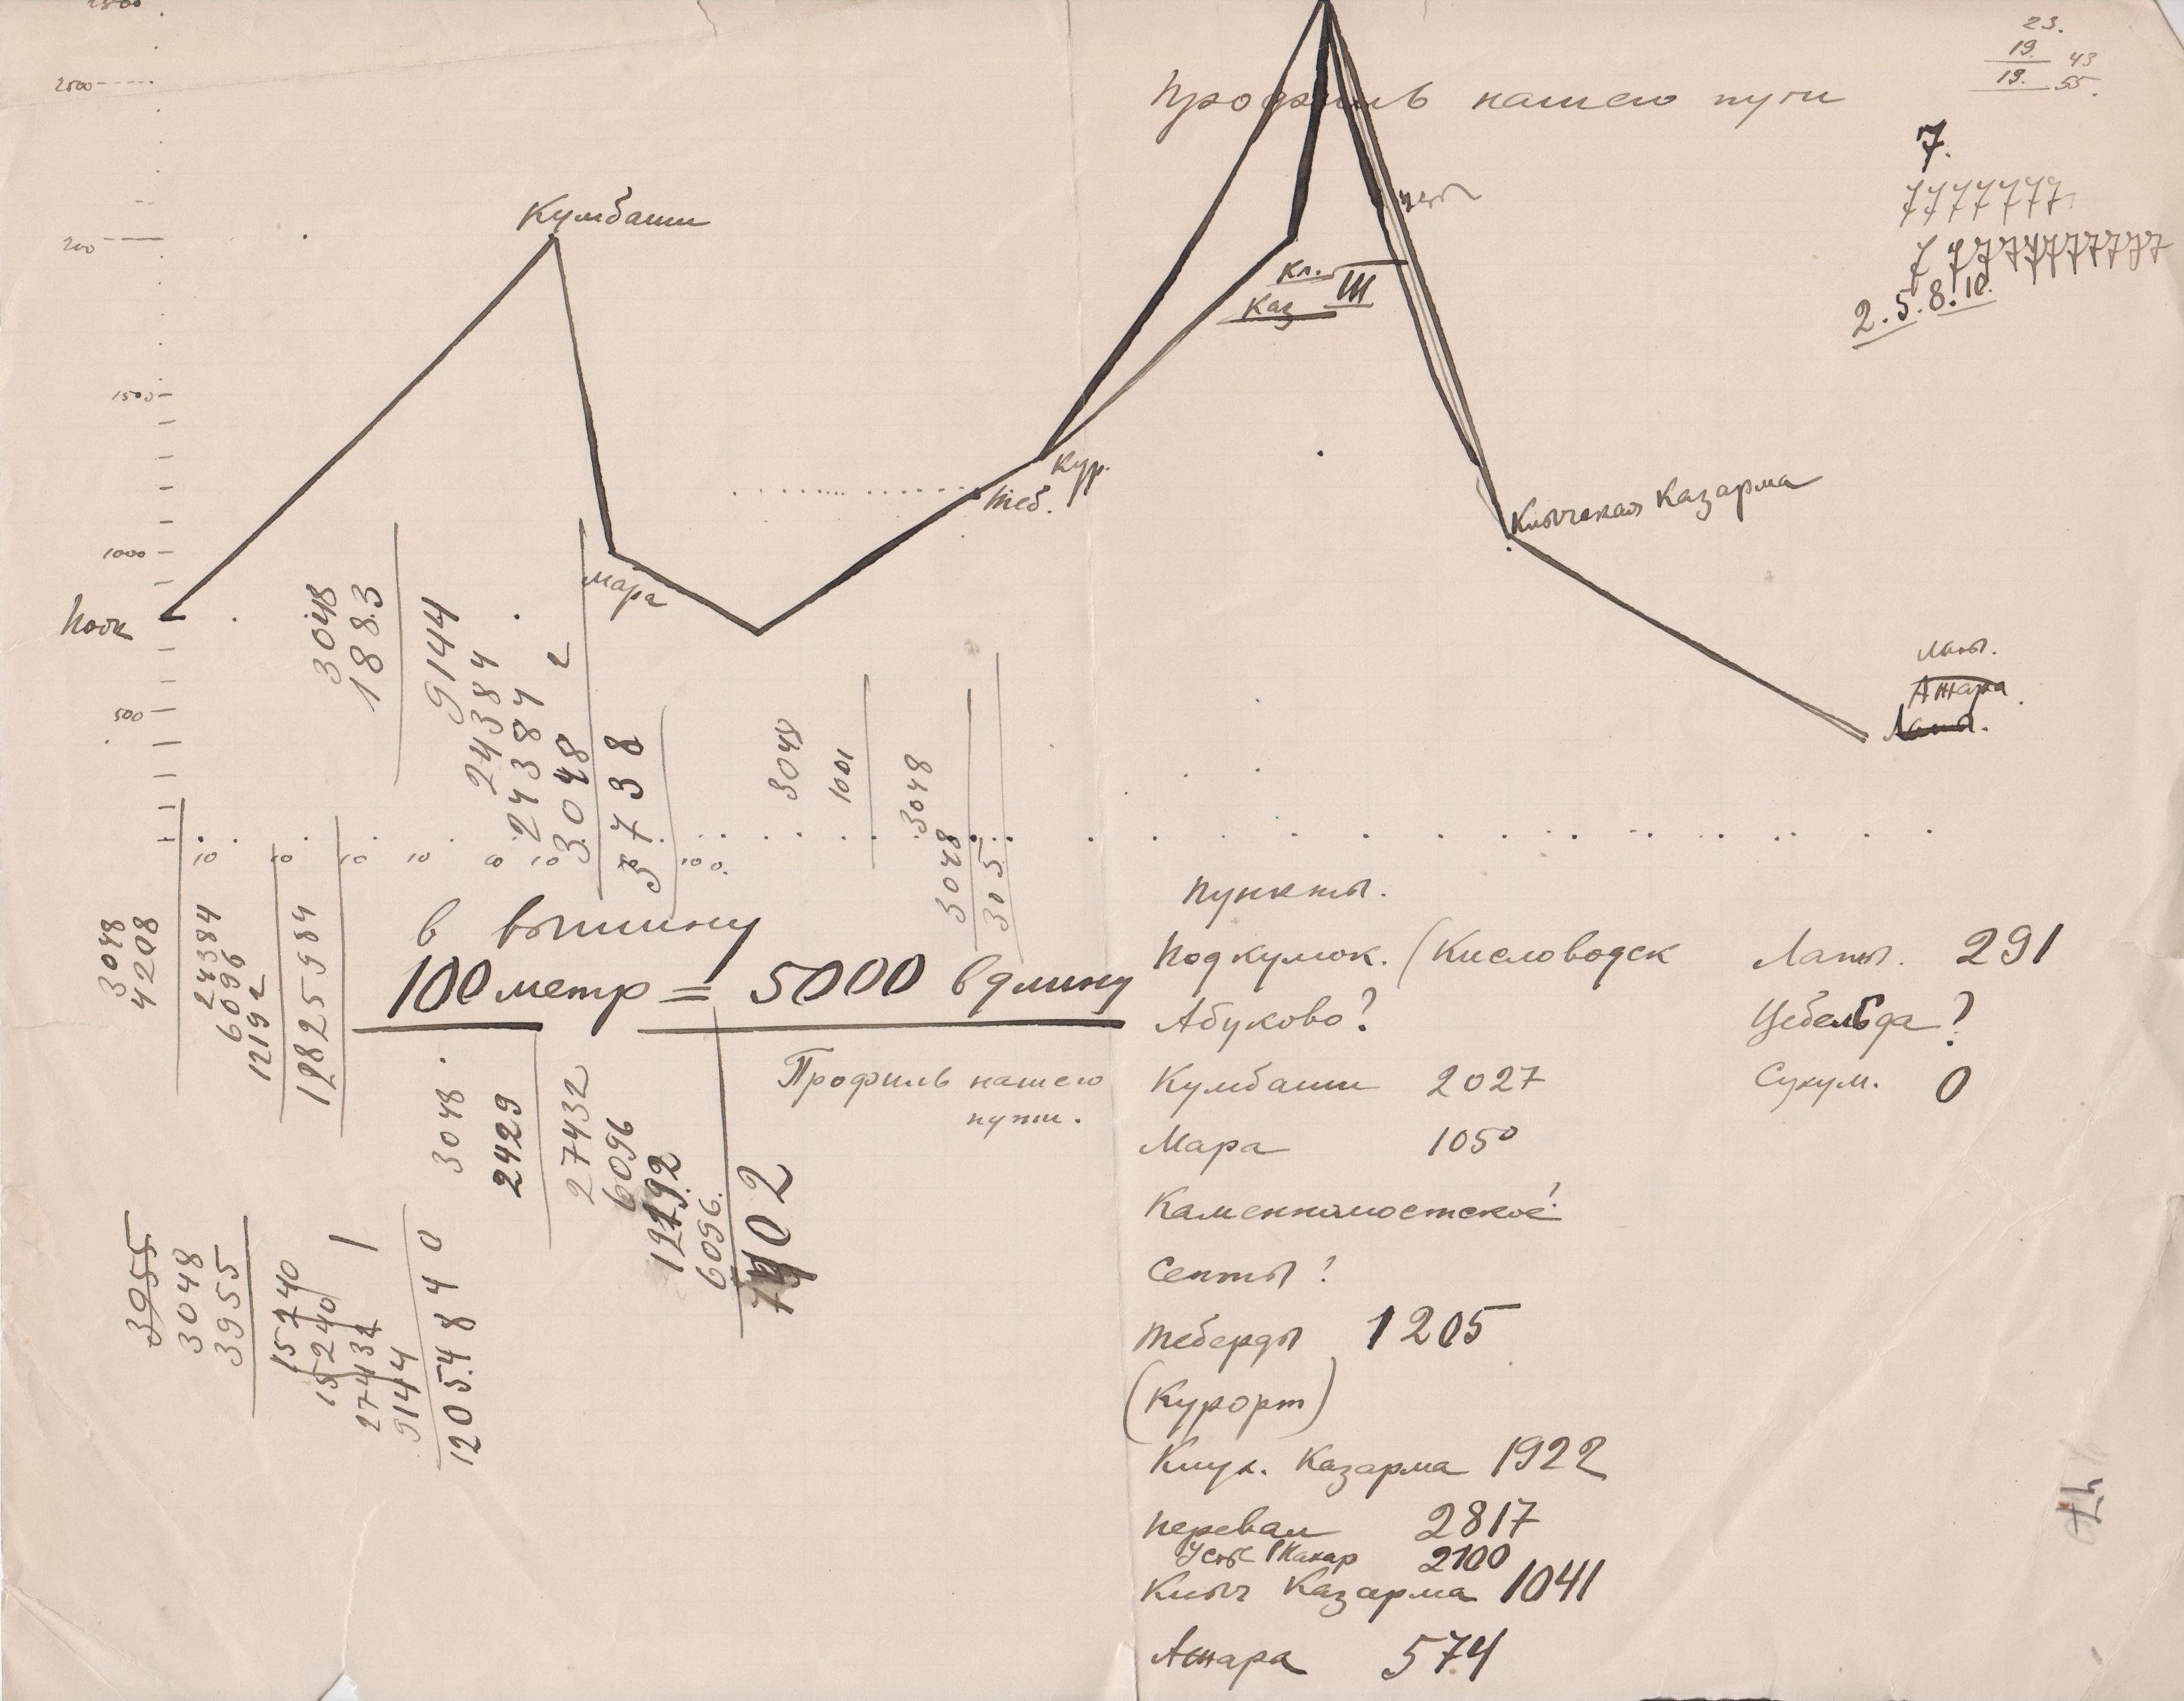 2500
Профиль нашего пути
23.
19. 43
13. 55.
7.
7777777
2.5.8.10.
Кумбаши
200
Кл.
Каз III
1500
Кур.
Теб.
Клычская Казарма
1000
Мара
Подк
500
Латы.
Ажара
Латы.
3048
188.3
9144
24384
24384
3048
5738
3048
1001
3048
3048
305
10 10 10 10 10 100.
3048
4208
24384
6096
12192
в вышину
100 метр = 5000 в длину
Профиль нашего
пути.
3048
2429
27432
6096
12192
6096.
3955
3048
3955
15240
15240
27432
9144
1205.4840
Пункты.
Подкумок. (Кисловодск
Абуково?
Кумбаши 2027
Мара 1050
Каменномостское?
Сенты?
Теберды 1205
(Курорт)
Клух. Казарма 1922
Перевал 2817
2100
Клыч Казарма 1041
Ажара 574
Латы. 291
Цебельда?
Сухум. 0